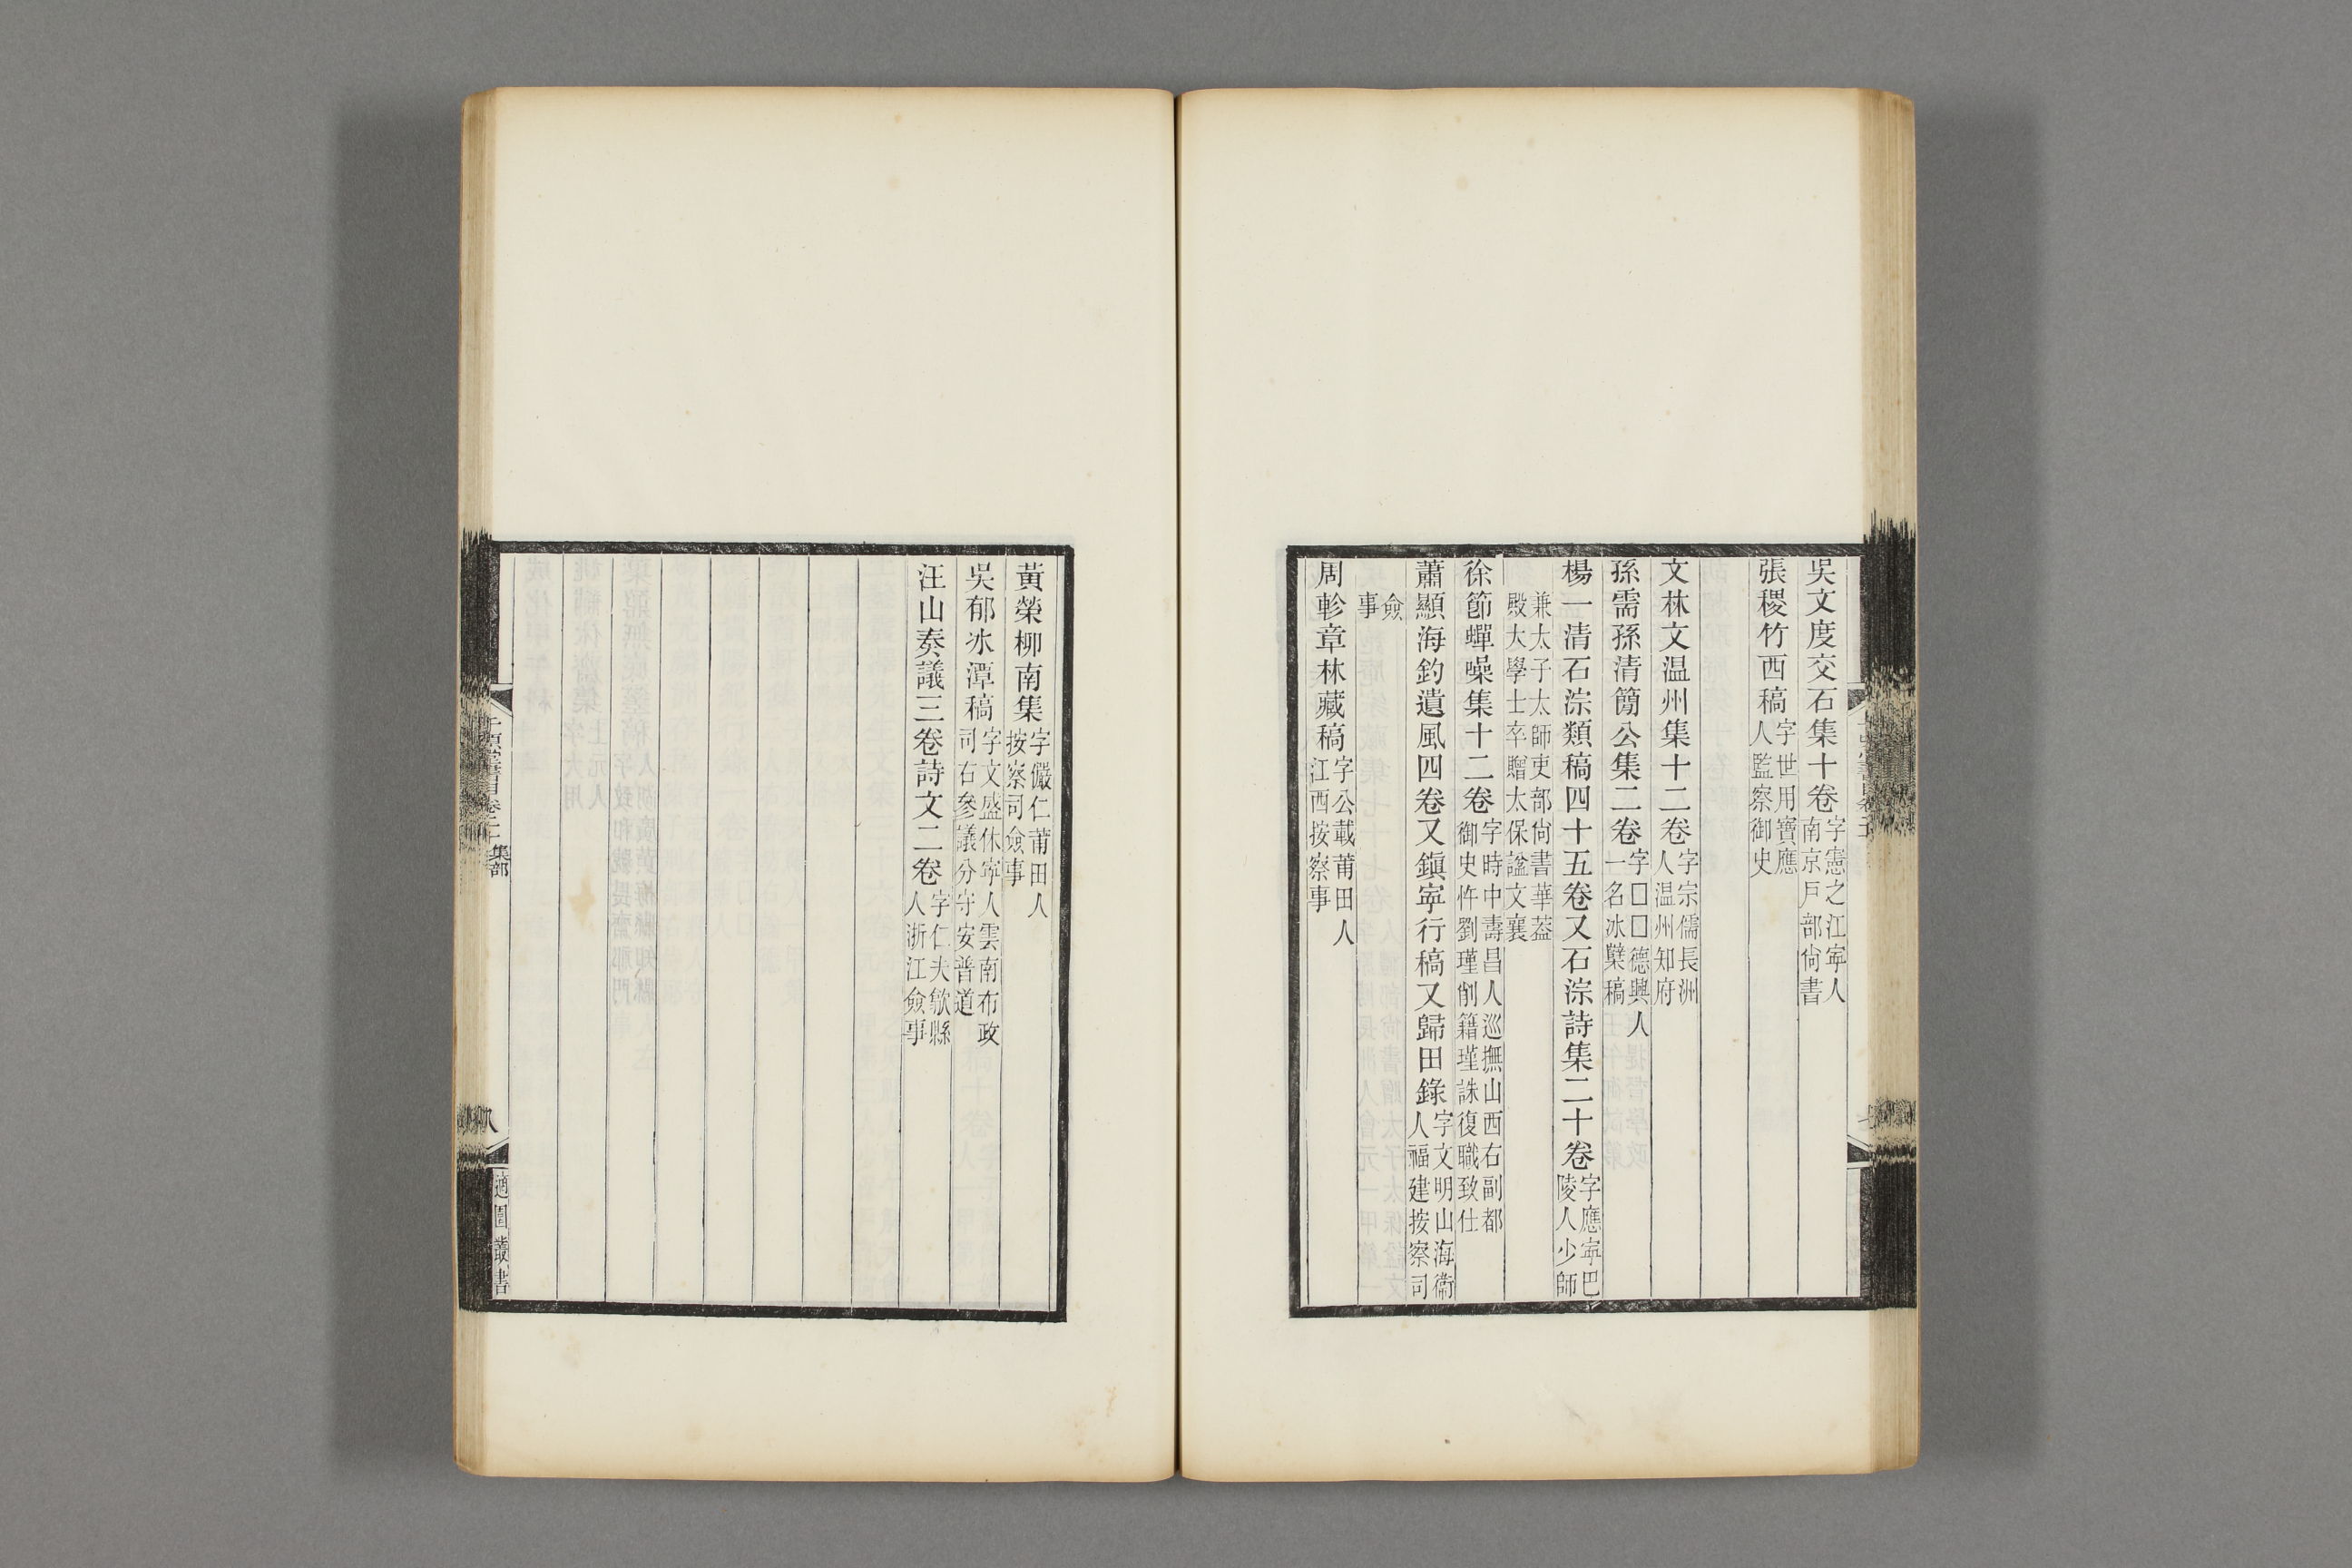 吳文度交石集十卷字憲之江寧人南京戸部尙書
張稷竹西稿字世用寶應人監察御史
文林文温州集十二卷字宗儒長洲人温州知府
孫需孫清簡公集二卷字□□德興人一名冰檗稿
楊一清石淙類稿四十五卷又石淙詩集二十卷字應寧巴陵人少師
兼太子太師吏部尙書華葢殿大學士卒贈太保諡文襄
徐節蟬噪集十二卷字時中壽昌人巡撫山西右副都御史忤劉瑾削籍瑾誅復職致仕
蕭顯海釣遺風四卷又鎭寧行稿又歸田錄字文明山海衞人福建按察司
僉事
周軫章林藏稿字公載莆田人江西按察事
黃榮柳南集字儼仁莆田人按察司僉事
吳郁冰潭稿字文盛休寧人雲南布政司右參議分守安普道
汪山奏議三卷詩文二卷字仁夫歙縣人浙江僉事
千頃堂書目卷二十 集部
八
適園叢書